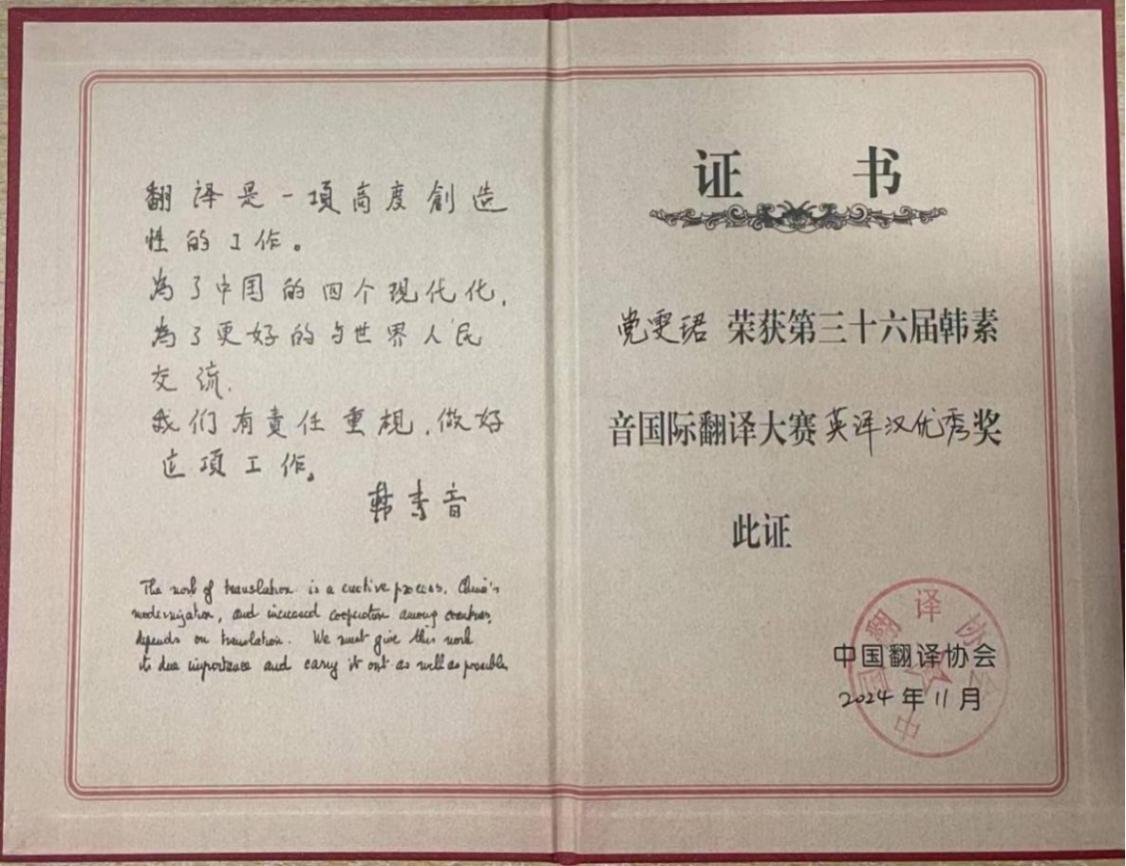 翻译是一項高度創造
性的工作。
為了中国的四个现代化,
為了更好的与世界人民
交流.
我们有責任重視,做好
这項工作。
韩素音
The work of translation is a creative process. China's
modernization, and increased cooperation among countries,
depends on translation. We must give this work
its due importance and carry it out as well as possible
证书
党雯珺 荣获第三十六届韩素
音国际翻译大赛英译汉优秀奖
此证
中国翻译协会
中国翻译协会
2024年11月